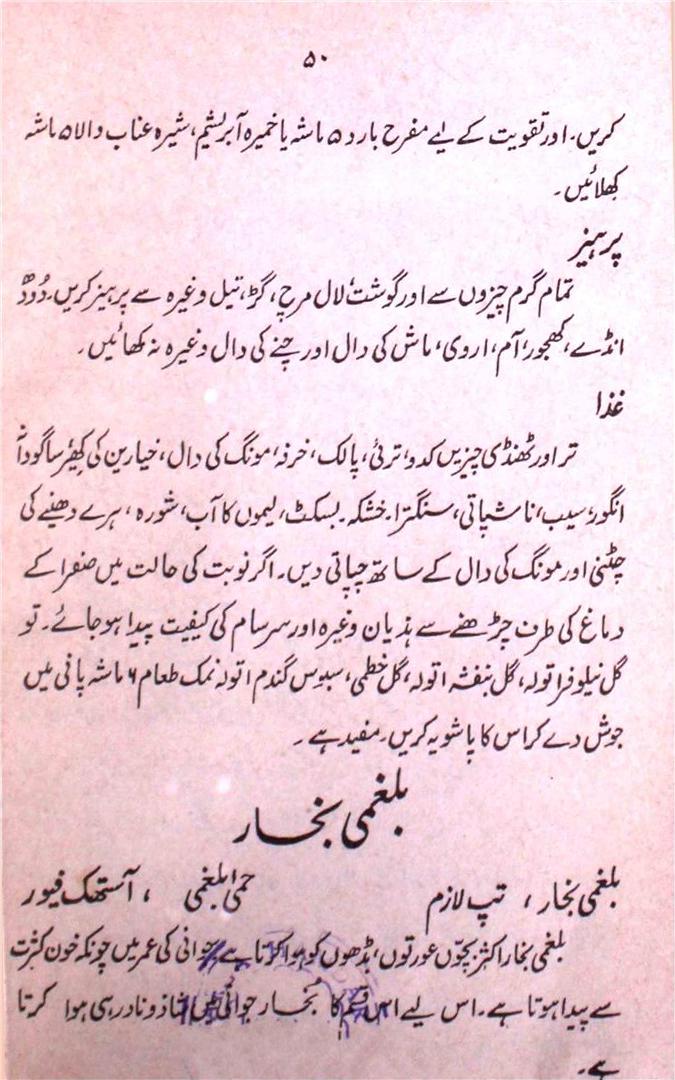 ۵۰
کریں۔ اور تقویت کے لیے مفرح بارد ۵ ماشہ یا خمیرہ آبریشم، شیرہ عناب والا ۵ ماشہ
کھلائیں۔
پرہیز
تمام گرم چیزوں سے اور گوشت، لال مرچ، گڑ، تیل وغیرہ سے پرہیز کریں۔ دُودھ
انڈے، کھجور، آم، اروی، ماش کی دال اور چنے کی دال وغیرہ نہ کھائیں۔
غذا
تر اور ٹھنڈی چیزیں کدو، ترئی، پالک، خرفہ، مونگ کی دال، خیارین کی کھیر، ساگودانہ
انگور، سیب، ناشپاتی، سنگترا۔ خشکہ۔ بسکٹ، لیموں کا آب، شورہ، ہرے دھنیے کی
چٹنی اور مونگ کی دال کے ساتھ چپاتی دیں۔ اگر نوبت کی حالت میں صفرا کے
دماغ کی طرف چڑھنے سے ہذیان وغیرہ اور سرسام کی کیفیت پیدا ہو جائے۔ تو
گل نیلوفر ۱ تولہ، گل بنفشہ ۱ تولہ، گل خطمی، سبوس گندم ۱ تولہ نمک طعام ۶ ماشہ پانی میں
جوش دے کر اس کا پاشویہ کریں۔ مفید ہے۔
بلغمی بخار
بلغمی بخار، تپ لازم حمیٰ بلغمی، آستھک فیور
بلغمی بخار اکثر بچّوں عورتوں، بڈھوں کو ہوا کرتا ہے جوانی کی عمر میں چونکہ خون کثرت
سے پیدا ہوتا ہے۔ اس لیے اس قسم کا بُخار جوانی میں شاذ و نادر ہی ہوا کرتا
ہے۔